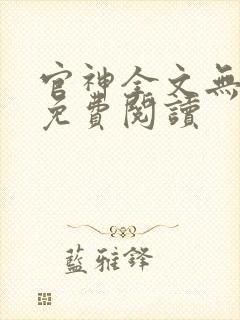 官神全文無
免費閱讀
藍雅鋒